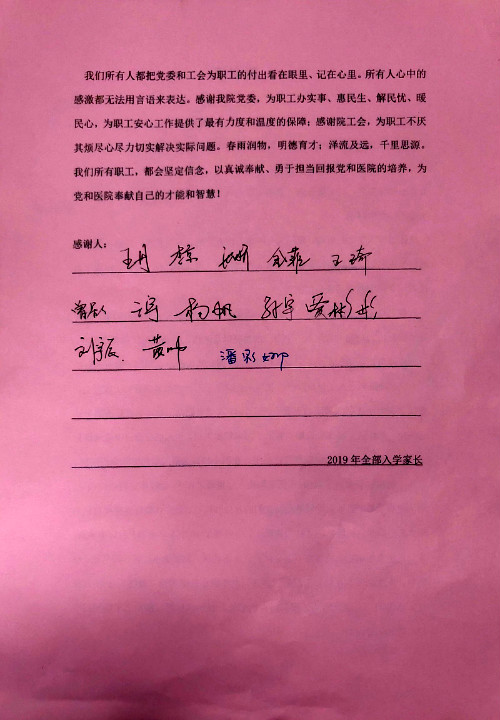 我们所有人都把党委和工会为职工的付出看在眼里、记在心里。所有人心中的
感激都无法用言语来表达。感谢我院党委，为职工办实事、惠民生、解民忧、暖
民心，为职工安心工作提供了最有力度和温度的保障；感谢院工会，为职工不厌
其烦尽心尽力切实解决实际问题。春雨润物，明德育才；泽流及远，千里思源。
我们所有职工，都会坚定信念，以真诚奉献、勇于担当回报党和医院的培养，为
党和医院奉献自己的才能和智慧！
感谢人：
王琦
杨帆
潘彩娜
2019 年全部入学家长